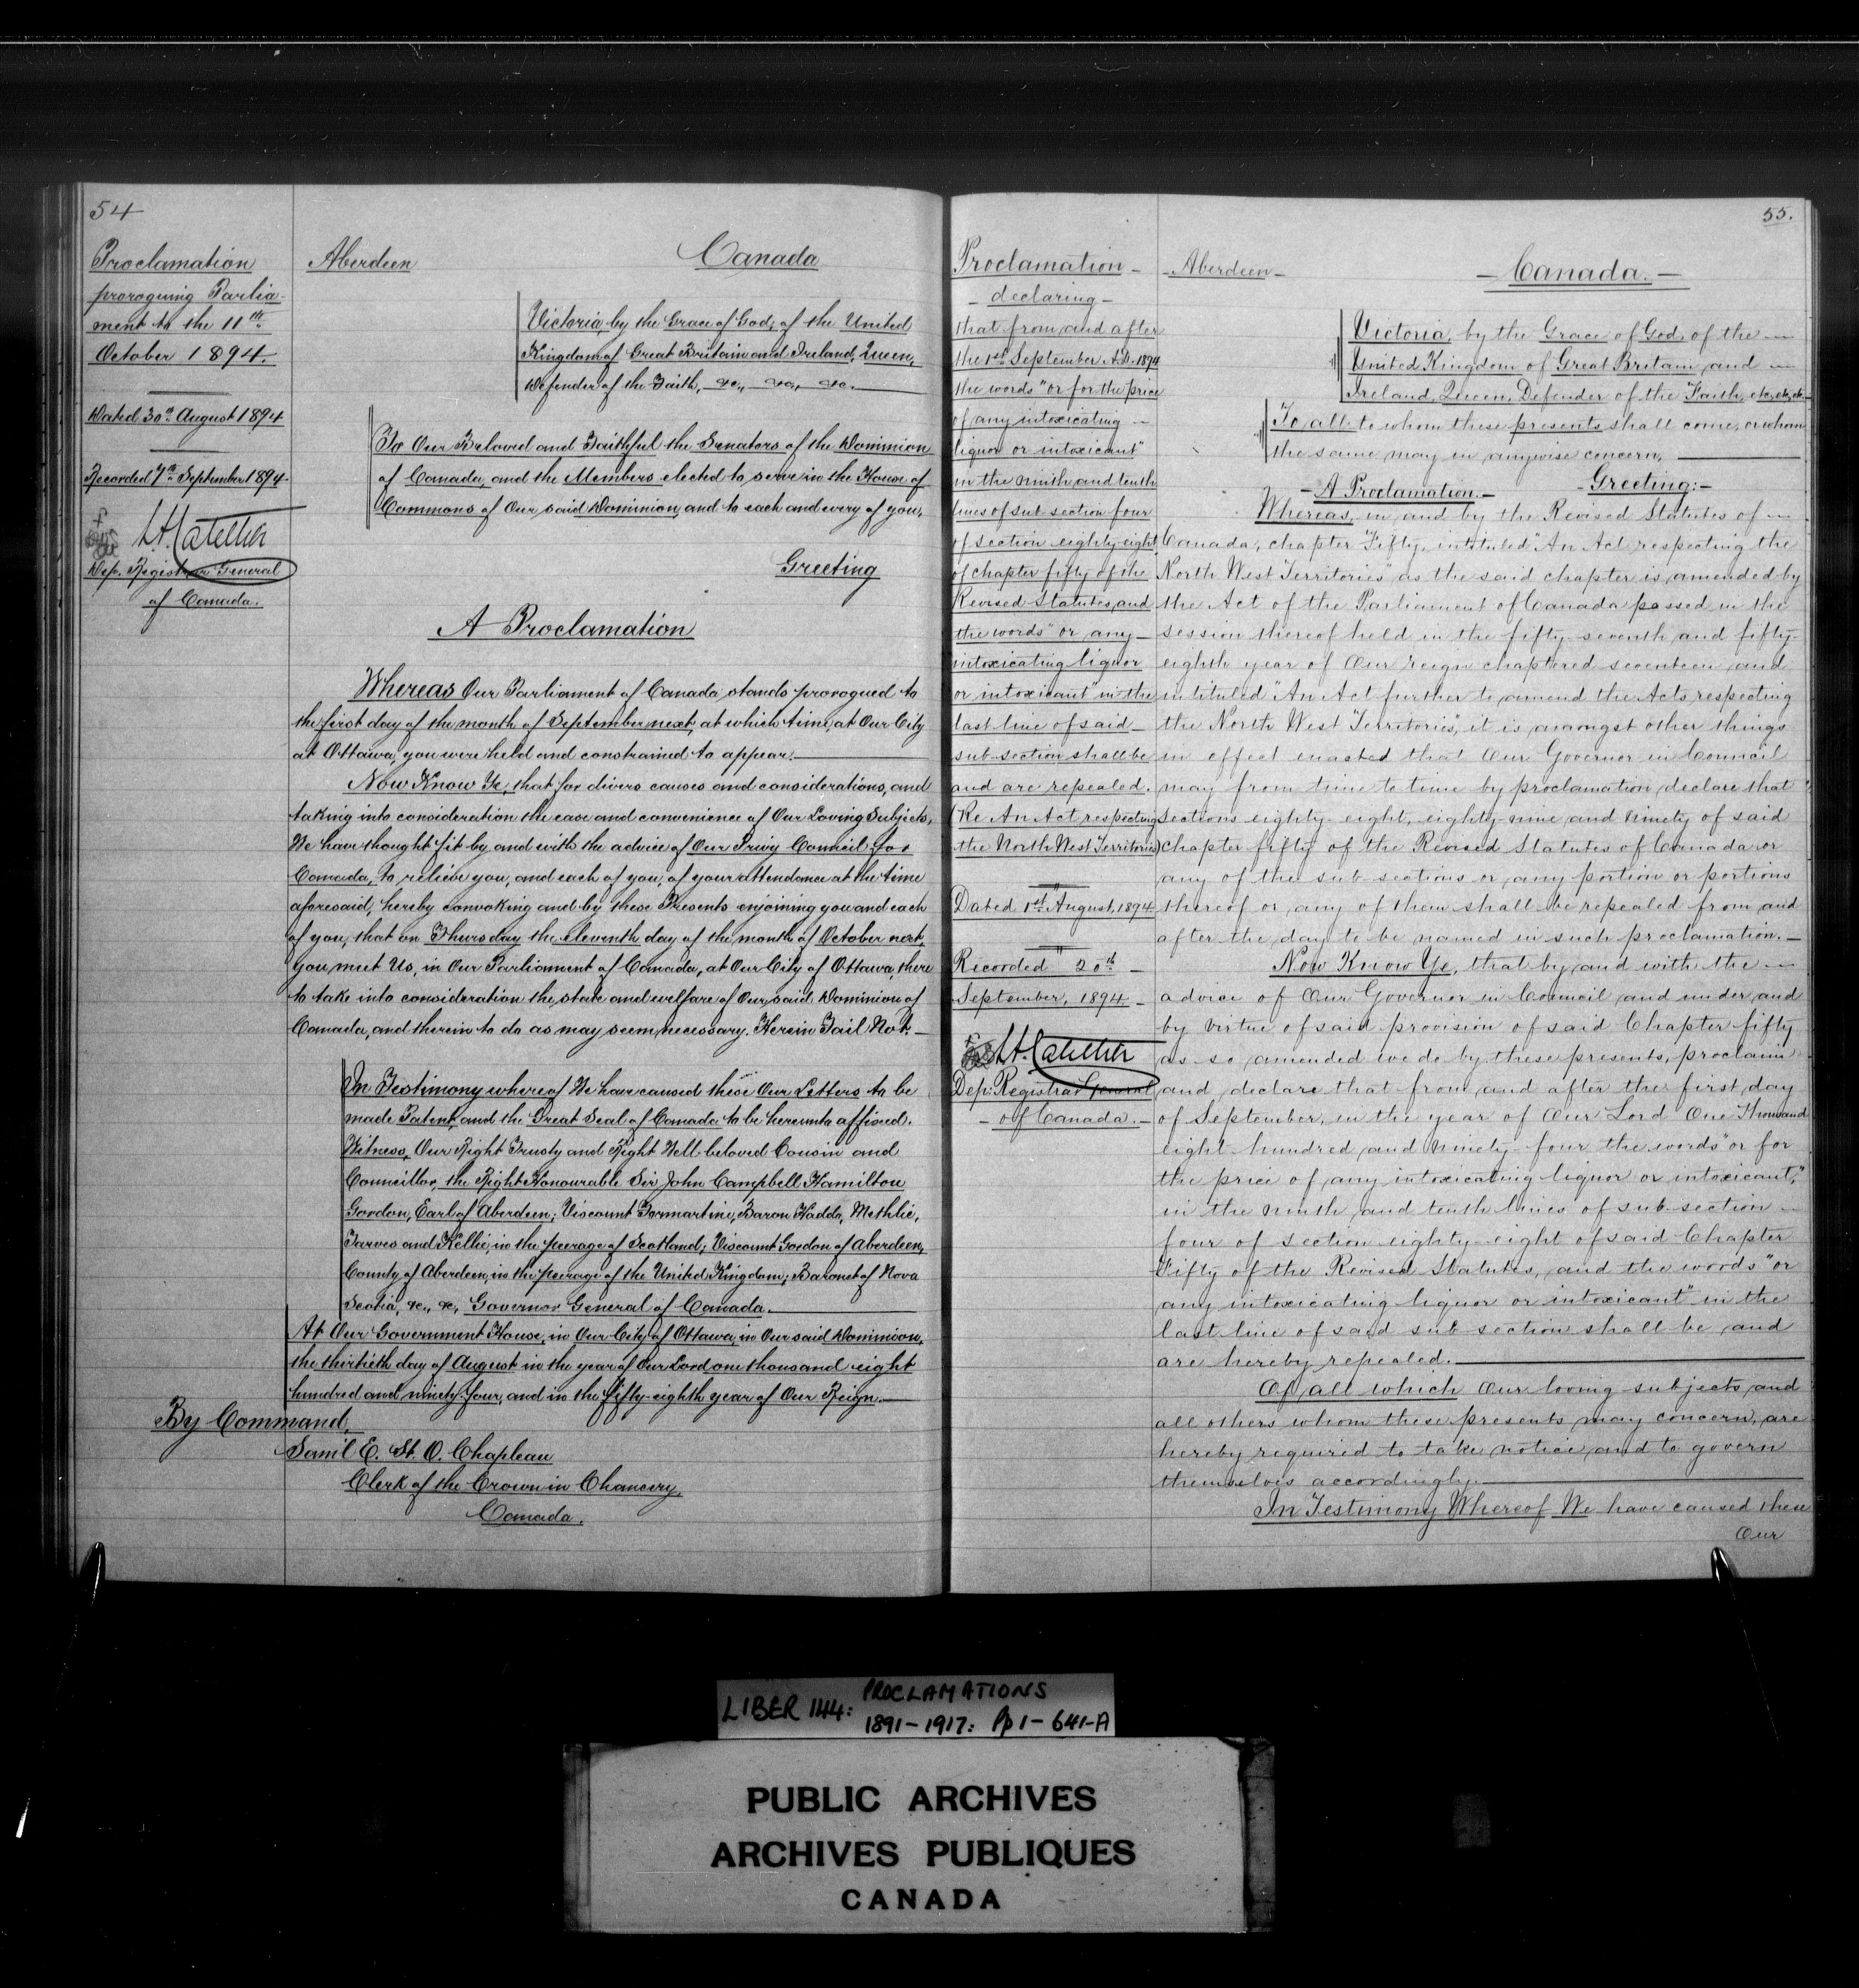 54
Proclamation
proroguing Parlia-
ment to the 11th
October 1894.
Dated 30th August 1894
Recorded 7th September 1894.
Dep. Registrar General
of Canada.
Aberdeen
Canada
Victoria, by the Grace of God, of the United
Kingdom of Great Britain and Ireland, Queen,
Defender of the Faith, &c., &c., &c.
To Our Beloved and Faithful the Senators of the Dominion
of Canada, and the Members elected to serve in the House of
Commons of Our said Dominion, and to each and every of you,
Greeting
A Proclamation
Whereas Our Parliament of Canada stands prorogued to
the first day of the month of September next, at which time, at Our City
at Ottawa, you were held and constrained to appear.
Now Know Ye, that for divers causes and considerations, and
taking into consideration the ease and convenience of Our Loving Subjects,
We have thought fit by and with the advice of Our Privy Council for
Canada, to relieve you, and each of you, of your attendance at the time
aforesaid, hereby convoking and by these Presents enjoining you and each
of you, that on Thursday the eleventh day of the month of October next,
you meet Us, in Our Parliament of Canada, at Our City of Ottawa, there
to take into consideration the state and welfare of Our said Dominion of
Canada, and therein to do as may seem necessary. Herein Fail Not.
In Testimony whereof We have caused these Our Letters to be
made Patent, and the Great Seal of Canada to be hereunto affixed.
Witness, Our Right Trusty and Right Well-beloved Cousin and
Councillor, the Right Honourable Sir John Campbell Hamilton
Gordon, Earl of Aberdeen; Viscount Formartine, Baron Haddo, Methlic,
Tarves and Kellie, in the peerage of Scotland; Viscount Gordon of Aberdeen,
County of Aberdeen, in the peerage of the United Kingdom; Baronet of Nova
Scotia, &c., &c, Governor General of Canada.
At Our Government House, in Our City of Ottawa, in Our said Dominion,
the thirtieth day of August in the year of Our Lord one thousand eight
hundred and ninety-four, and in the fifty-eighth year of Our Reign.
By Command,
Saml E. St. O. Chapleau
Clerk of the Crown in Chancery,
Canada.
55.
Proclamation -
- declaring -
that from and after
the 1st September A.D. 1894
the words "or for the price
of any intoxicating
liquor or intoxicant"
in the ninth and tenth
lines of sub section four
of section eighty-eight
of chapter fifty of the
Revised Statutes, and
the words "or any
intoxicating liquor
or intoxicant" in the
last line of said
sub-section shall be
and are repealed.
(Re An Act respecting
the North West Territories)
Dated 1st August, 1894
Recorded 20th
September, 1894
Dep: Registrar General
- of Canada. -
- Aberdeen -
- Canada. -
Victoria, by the Grace of God, of the
United Kingdom of Great Britain and
Ireland, Queen, Defender of the Faith, etc, etc, etc.
To all to whom these presents shall come, or whom
the same may in anywise concern,
- Greeting: -
- A Proclamation. -
Whereas, in and by the Revised Statutes of
Canada, chapter Fifty, intituled "An Act respecting the
North West Territories" as the said chapter is amended by
the Act of the Parliament of Canada passed in the
session thereof held in the fifty-seventh and fifty-
eighth year of Our reign chaptered seventeen and
intituled "An Act further to amend the Acts respecting
the North West Territories", it is amongst other things
in effect enacted that Our Governor in Council
may from time to time by proclamation declare that
sections eighty-eight, eighty-nine and ninety of said
chapter fifty of the Revised Statutes of Canada or
any of the sub-sections or any portion or portions
thereof or any of them shall be repealed from and
after the day to be named in such proclamation.
Now Know Ye, that by and with the
advice of Our Governor in Council and under and
by virtue of said provision of said Chapter fifty
as so amended we do by these presents, proclaim
and declare that from and after the first day
of September, in the year of Our Lord One Thousand
eight hundred and ninety-four the words "or for
the price of any intoxicating liquor or intoxicant,"
in the ninth and tenth lines of sub-section
four of section eighty-eight of said Chapter
Fifty of the Revised Statutes, and the words "or
any intoxicating liquor or intoxicant" in the
last line of said sub section shall be and
are hereby repealed.
Of all which Our loving subjects and
all others whom these presents may concern, are
hereby required to take notice and to govern
themselves accordingly.
In Testimony Whereof We have caused these
Our
LIBER 144: PROCLAMATIONS
1891-1917: Pp 1-641-A
PUBLIC ARCHIVES
ARCHIVES PUBLIQUES
CANADA